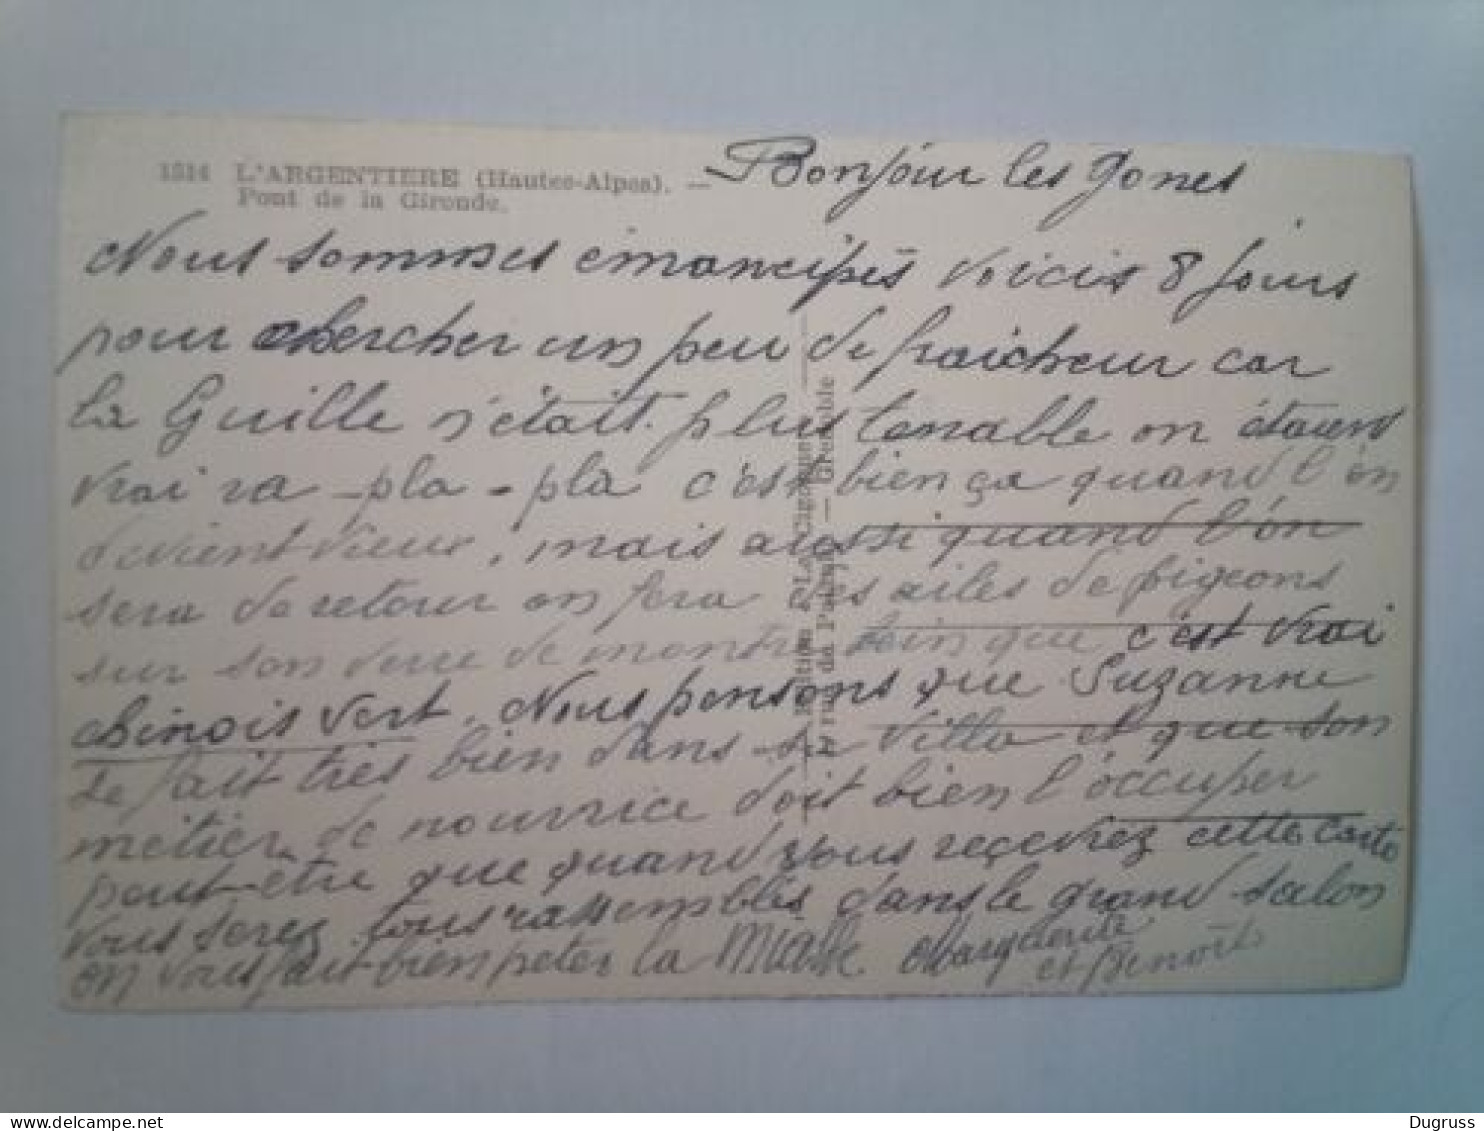 1314 L'ARGENTIERE (Hautes-Alpes). —
Pont de la Gironde.
Bonjour les gones
Nous sommes émancipés voicis 8 jours
pour chercher un peu de fraicheur car
la Guille n'était plus tenable on étaient
vrai ra-pla-pla c'est bien ça quand l'on
devient vieux, mais aussi quand l'on
sera de retour on fera des ailes de pigeons
sur son verre de montre que c'est vrai
chinois vert. Nous pensons que Suzanne
se fait très bien dans sa villa et que son
métier de nourrice doit bien l'occuper
peut-être que quand vous recevrez cette carte
vous serez tous rassemblés dans le grand salon
on vous fait bien peter la Miasse. Marguerite
et Benoît
Edition "La Cigogne"
rue de Palanka — Grenoble
Dugruss